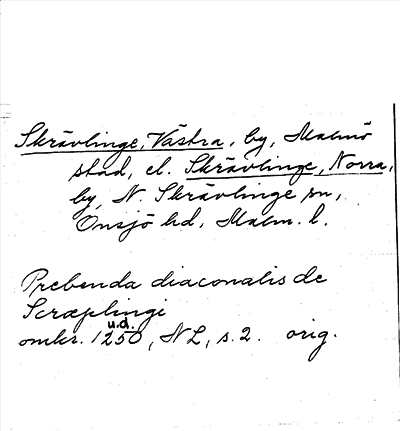 Skrävlinge, Västra, by, Malmö
stad, el. Skrävlinge, Norra,
by, N. Skrävlinge sn,
Onsjö hd, Malm. l.
Prebenda diaconalis de
Scræplingi
u.d.
omkr. 1250, NL, s. 2. orig.